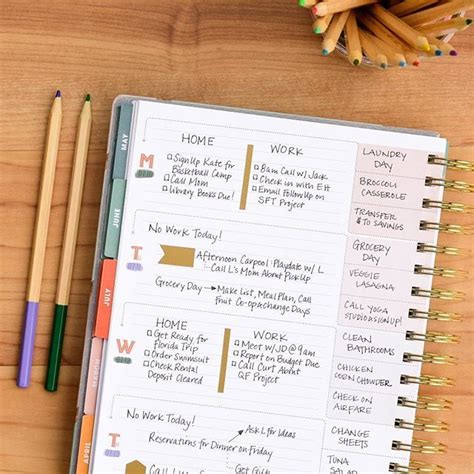 MAY
JUNE
JULY
APRIL
M
HOME
Sign Up Kate for
Basketball Camp
Call Mom
Library Books Due!
WORK
8am Call w/ Jack
Check in with EH
Email Follow Up on
SFT Project
LAUNDRY
DAY
BROCOLI
CASSEROLE
TRANSFER
TO SAVINGS
T
No Work Today!
Afternoon Carpool Playdate w/ L
Call L's Mom About Pick Up
Grocery Day → Make List, Meal Plan, Call
Fruit Co-op → change Days
GROCERY
DAY
VEGGIE
LASAGNA
CALL YOGA
STUDIO SIGN UP!
W
HOME
Get Ready for
Florida Trip
Order Swimsuit
Check Rental
Deposit Cleared
WORK
Meet w/ JD @ 9am
Report on Budget Due
Call Curt About
QF Project
CLEAN
BATHROOMS
CHICKEN
CORN CHOWDER
CHECK ON
AIRFARE
T
No Work Today!
Ask L for Ideas
Reservations for Dinner on Friday
Get Gifts
Call
CHANGE
SHEETS
TUNA
SALAD